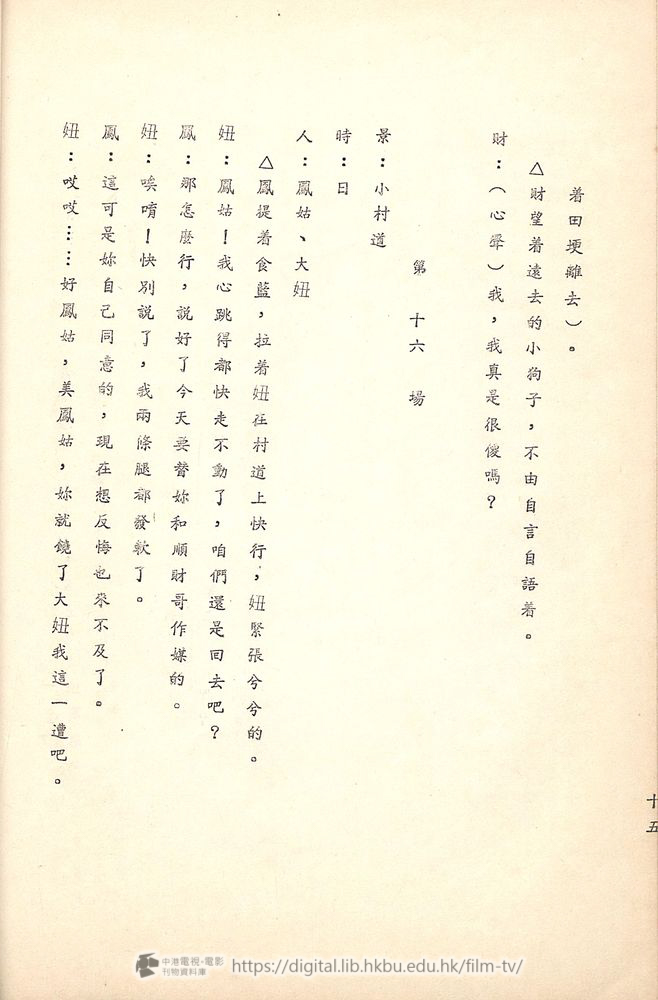 着田埂離去）。
△財望着遠去的小狗子，不由自言自語着。
財：（心聲）我，我真是很傻嗎？
第十六場
景：小村道
時：日
人：鳳姑、大妞
△鳳提着食籃，拉着妞在村道上快行，妞緊張兮兮的。
妞：鳳姑！我心跳得都快走不動了，咱們還是回去吧？
鳳：那怎麼行，說好了今天要替妳和順財哥作媒的。
妞：唉唷！快別說了，我兩條腿都發軟了。
鳳：這可是妳自己同意的，現在想反悔也來不及了。
妞：哎哎……好鳳姑，美鳳姑，妳就饒了大妞我這一遭吧。
十五
中港電視・電影
刊物資料庫
https://digital.lib.hkbu.edu.hk/film-tv/